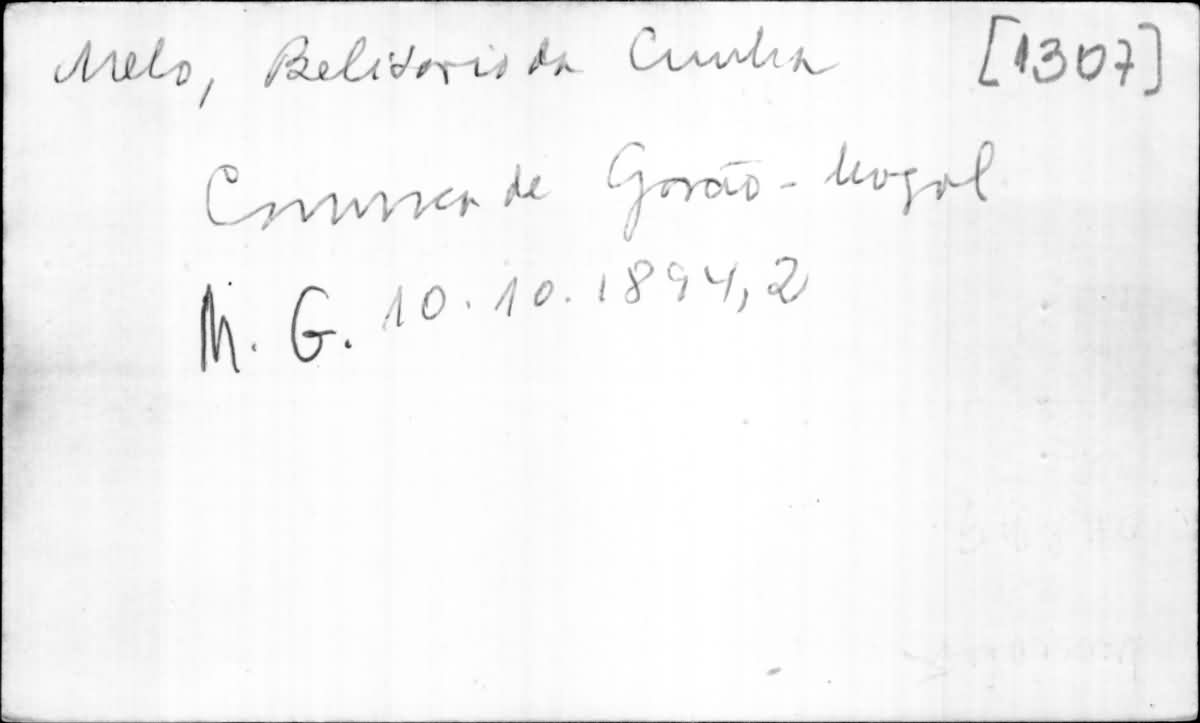 Melo, Belisario da Cunha [1307]
Comarca de Grão-Mogol
M. G. 10.10.1894, 2